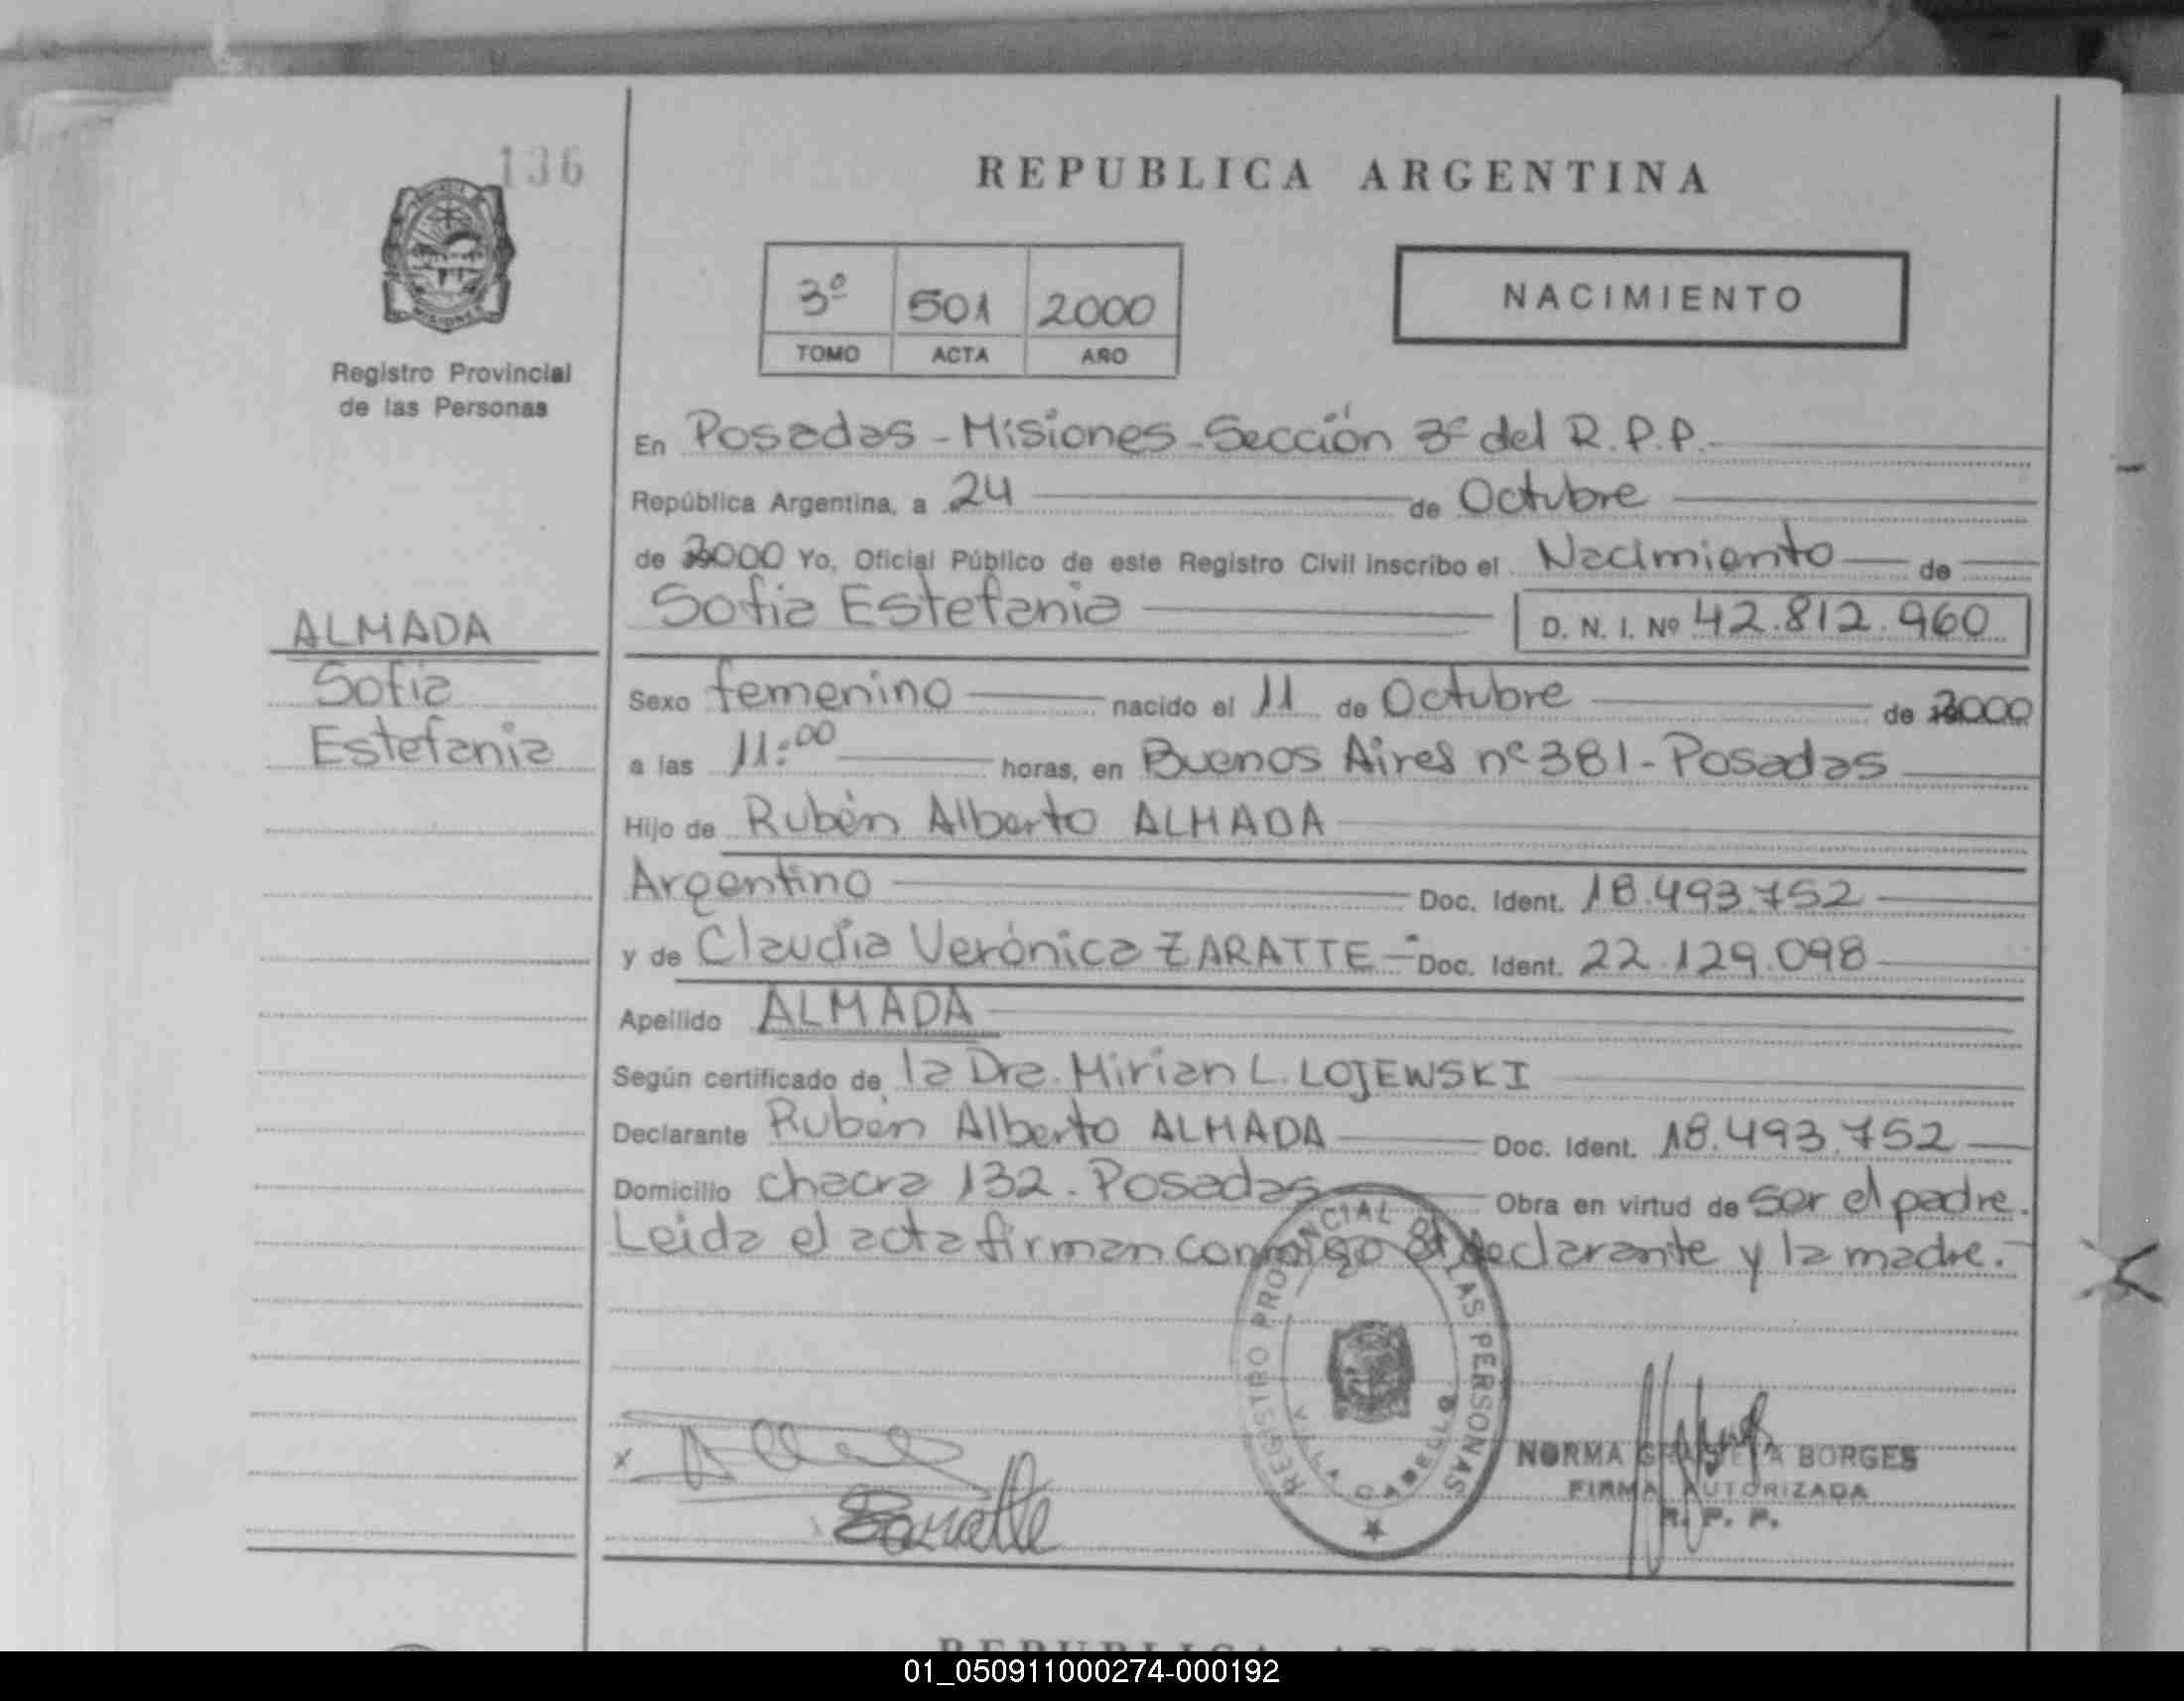 136
REPUBLICA ARGENTINA
MISIONES
Registro Provincial
de las Personas
3º 501 2000
TOMO ACTA AÑO
NACIMIENTO
En Posadas - Misiones - Sección 3º del R.P.P.
República Argentina, a 24 de Octubre
de 2000 Yo, Oficial Público de este Registro Civil inscribo el Nacimiento de
Sofia Estefania D. N. I. Nº 42.812.960
ALMADA
Sofia
Estefania
Sexo femenino nacido el 11 de Octubre de 2000
a las 11:00 horas, en Buenos Aires nº 381 - Posadas
Hijo de Rubén Alberto ALMADA
Argentino Doc. Ident. 18.493.752
y de Claudia Verónica ZARATTE - Doc. Ident. 22.129.098
Apellido ALMADA
Según certificado de la Dra. Mirian L. LOJEWSKI
Declarante Rubén Alberto ALMADA Doc. Ident. 18.493.752
Domicilio chacra 132 - Posadas Obra en virtud de ser el padre.
Leida el acta firman conmigo el declarante y la madre.-
REGISTRO PROVINCIAL DE LAS PERSONAS
VILLA CABELLO
x
Zaratte
NORMA BORGES
FIRMA AUTORIZADA
R. P. P.
REPUBLICA ARGENTINA
01_050911000274-000192